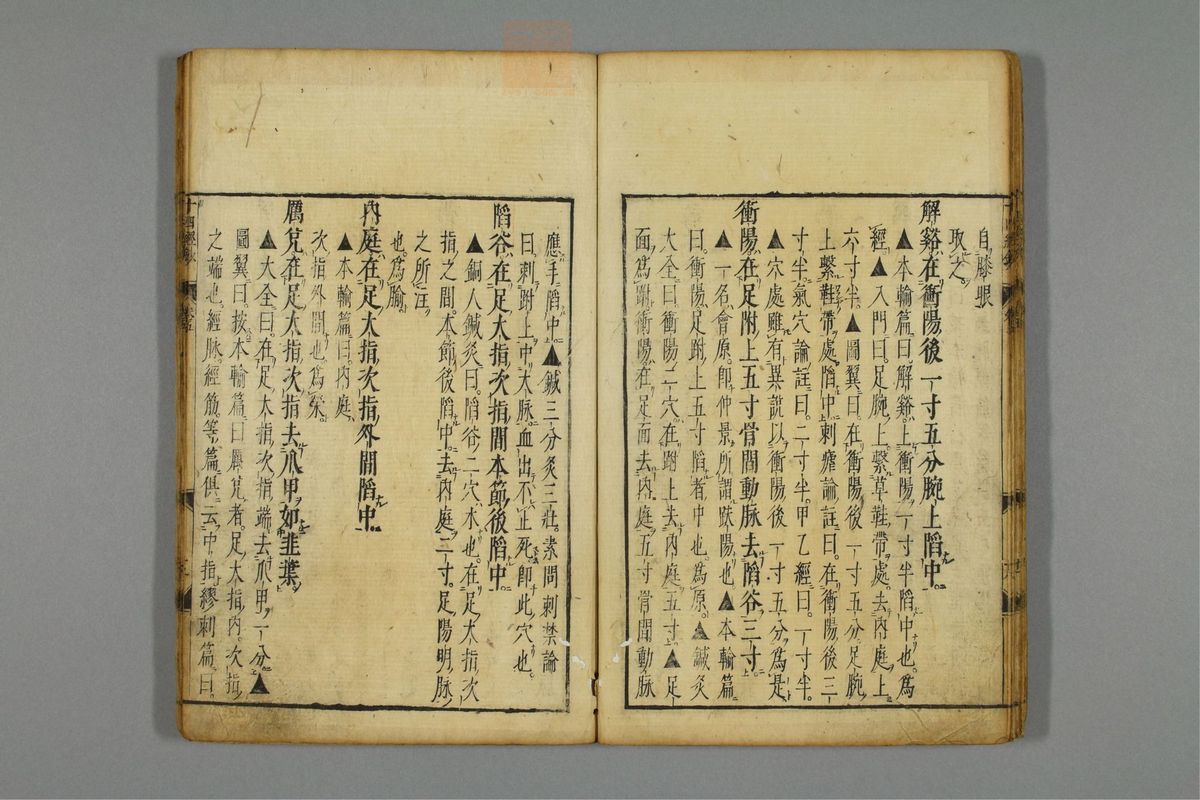 自膝眼
取之
解谿在衝陽後一寸五分腕上陷中
▲本輸篇曰解谿上衝陽一寸半陷中也爲
經▲入門曰足腕上繫草鞋帶處去内庭上
六寸半▲圖翼曰在衝陽後一寸五分足腕
上繫鞋帶處陷中刺瘧論註曰在衝陽後三
寸半氣穴論註曰二寸半甲乙經曰一寸半
▲穴處雖有異說以衝陽後一寸五分爲是
衝陽在足附上五寸骨間動脉去陷谷三寸
▲一名會原即仲景所謂趺陽也▲本輸篇
曰衝陽足跗上五寸陷者中也爲原▲鍼灸
大全曰衝陽二穴在跗上去内庭五寸▲足
面爲跗衝陽在足面去内庭五寸骨間動脉
應手陷中▲鍼三分灸三壯素問刺禁論
曰刺跗上中大脉血出不止死即此穴也
陷谷在足大指次指間本節後陷中
▲銅人鍼灸曰陷谷二穴木也在足大指次
指之間本節後陷中去内庭二寸足陽明脉
之所注
也爲腧
内庭在足大指次指外間陷中
▲本輸篇曰内庭
次指外間也爲滎
厲兌在足大指次指去爪甲如韭葉
▲大全曰在足大指次指端去爪甲一分▲
圖翼曰按本輸篇曰厲兌者足大指内次指
之端也經脉經筋等篇俱云中指繆刺篇曰